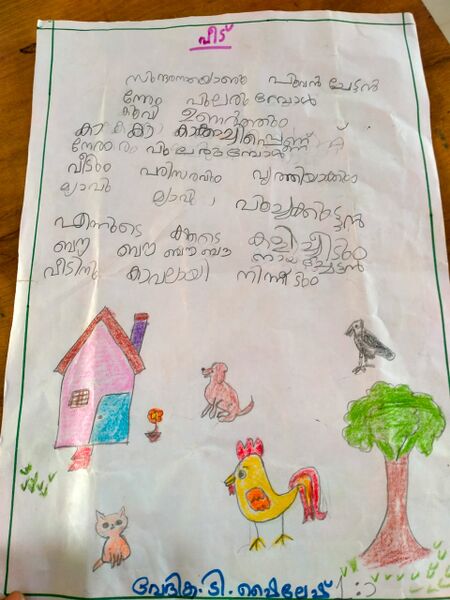 വീട്
സുന്ദരനായൊരു പൂവൻ ചേട്ടൻ
നേരം പുലരുമ്പോൾ
കൂവി ഉണർത്തും
കാ കാ കാ കാക്കച്ചിപ്പെണ്ണ്
നേരം പുലരുമ്പോൾ
വീടും പരിസരവും വൃത്തിയാക്കും
മ്യാവൂ മ്യാവൂ പൂച്ചക്കുട്ടൻ
എന്നുടെ കൂടെ കളിച്ചീടും
ബൗ ബൗ ബൗ ബൗ നായച്ചേട്ടൻ
വീടിനു കാവലായി നിന്നീടും
വേദിക. ടി. ഷൈലേഷ് 1